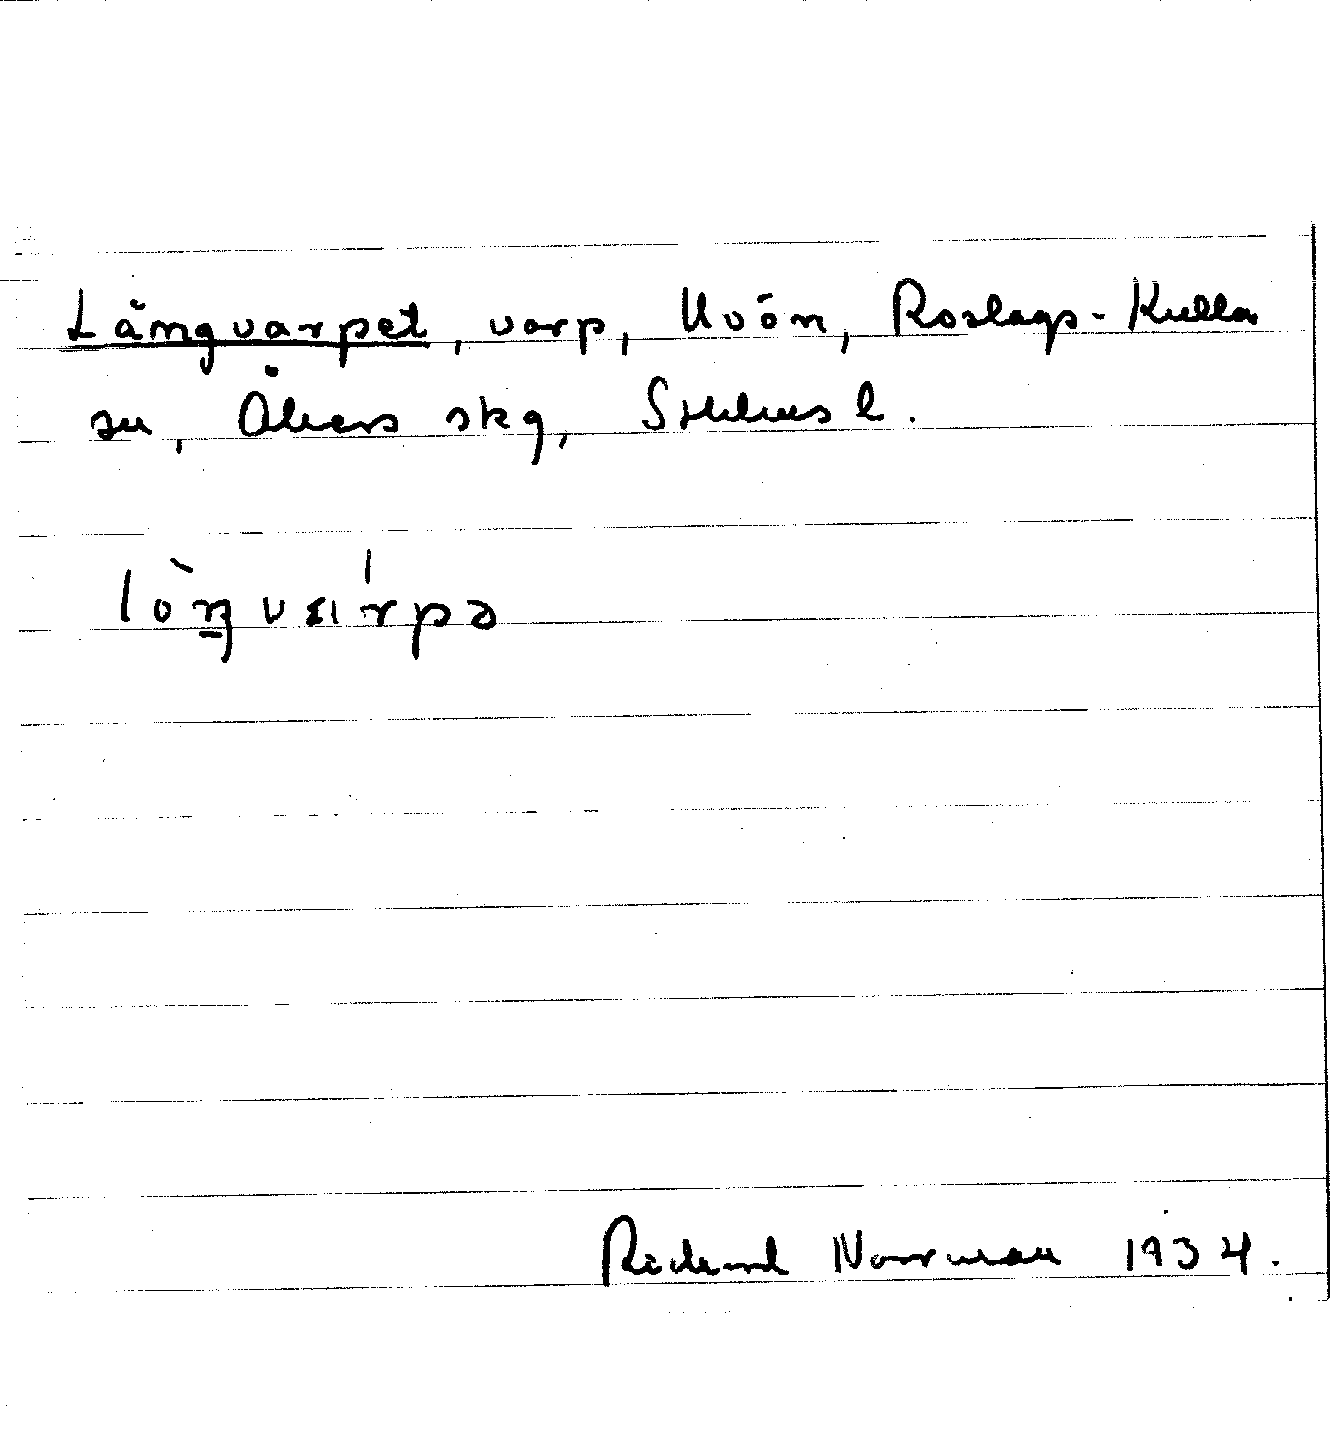 Långvarpet, varp, Uvön, Roslags-Kulla
sn, Åkers skg, Sthlms l.
lòŋvɑrpə
Rickard Norrman 1934.